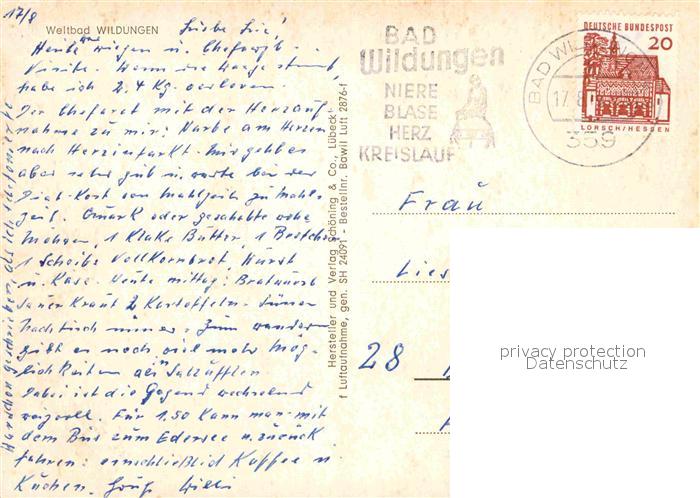 17/8
Weltbad WILDUNGEN
Liebe Lie!
Heute war wiegen u. Chefvertr.
Visite. Wenn die Waage stimmt,
habe ich 2,4 Kg. verloren.
Der Chefarzt mit der Herzauf-
nahme zu mir: Narbe am Herzen
nach Herzinfarkt. Mir geht es
aber sehr gut u. warte bei der
Diät-Kost von Mahlzeit zu Mahl-
zeit. Quark oder geschabte rohe
Möhren, 1 Klaks Butter, 1 Brötchen
1 Scheibe Vollkornbrot, Wurst
u. Käse. Heute mittag: Bratwurst
Sauer Kraut 2 Kartoffeln.
Nachtisch immer. Zum wandern
gibt es noch viel mehr Mög-
lichkeiten als in Salzuflen
Dabei ist die Gegend wechsel
reizvoll. Für 1,50 kann man mit
dem Bus zum Edersee u. zurück
fahren: einschließlich Kaffee u.
Kuchen. Gruß Willi
War schon geschrieben, als ich telefonierte
Hersteller und Verlag Schöning & Co., Lübeck
f Luftaufnahme, gen. SH 24091 - Bestellnr. Bawil Luft 2876-f
BAD
Wildungen
NIERE
BLASE
HERZ
KREISLAUF
BAD WILDUNGEN
17.8
359
DEUTSCHE BUNDESPOST
20
LORSCH/HESSEN
Frau
Lies
28
privacy protection
Datenschutz